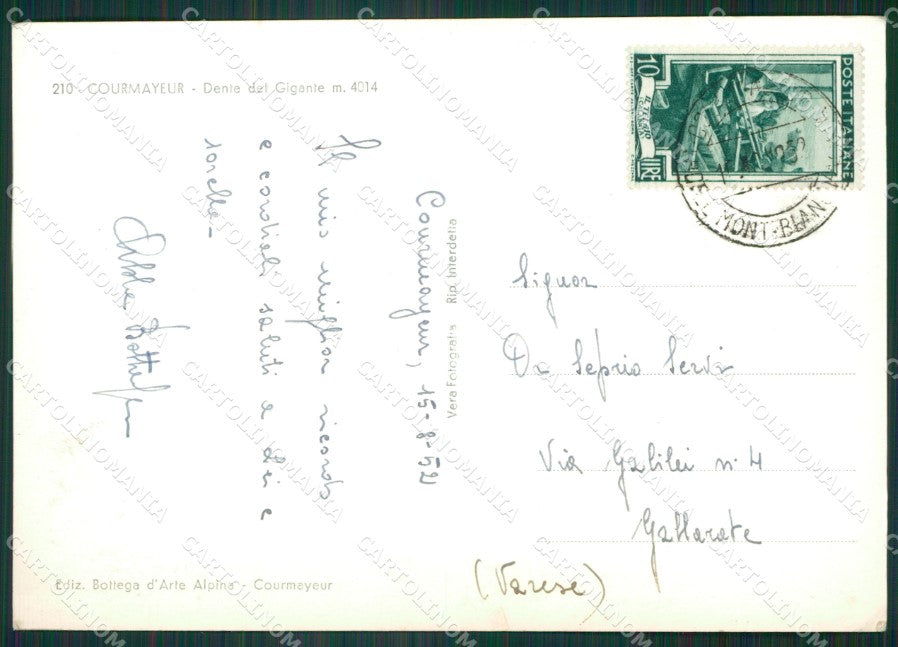 210 - COURMAYEUR - Dente del Gigante m. 4014
Courmayeur, 15-8-52
Il mio miglior ricordo
e cordiali saluti a Lei e
sorella -
Vera Fotografia Rip. Interdetta
Ediz. Bottega d'Arte Alpina - Courmayeur
10 LIRE
POSTE ITALIANE
IL TELAIO
MONT-BLANC
Signor
Dr Seprio Servi
Via Galilei n. 4
Gallarate
(Varese)
CARTOLINOMANIA